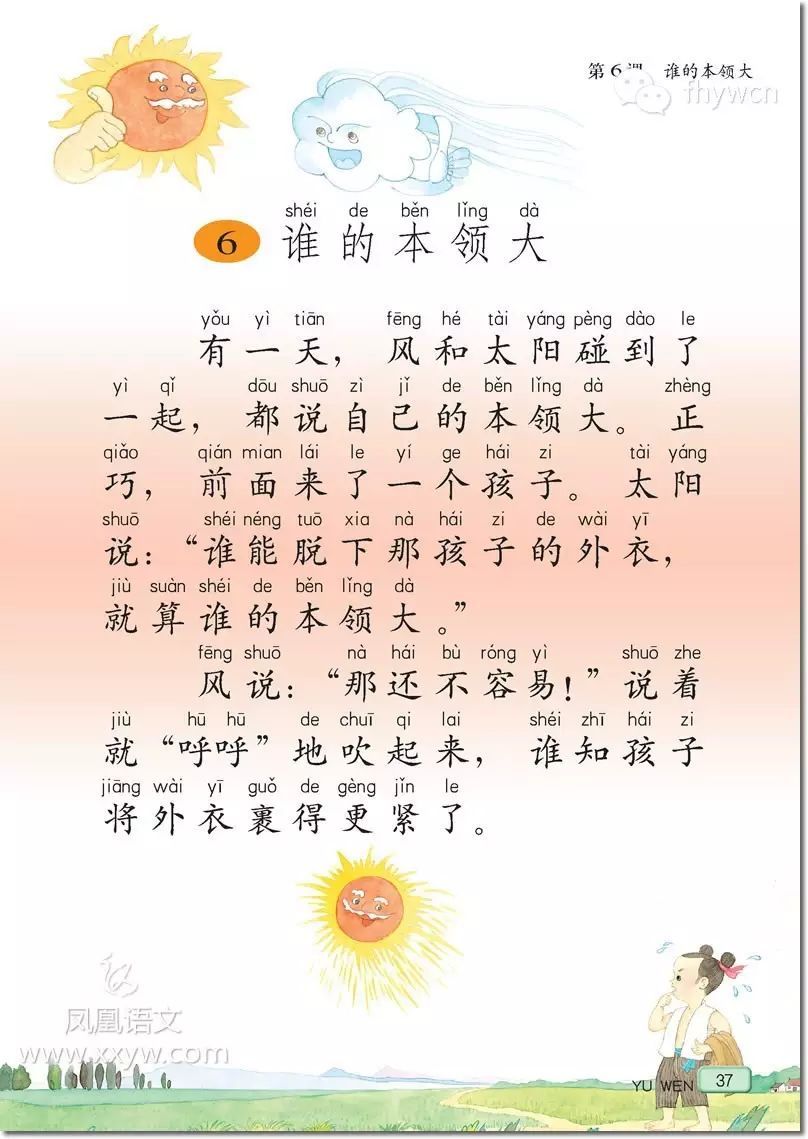 第6课 谁的本领大
fhywcn
shéi de běn lǐng dà
6 谁的本领大
yǒu yì tiān fēng hé tài yáng pèng dào le
有一天，风和太阳碰到了
yì qǐ dōu shuō zì jǐ de běn lǐng dà zhèng
一起，都说自己的本领大。正
qiǎo qián mian lái le yí ge hái zi tài yáng
巧，前面来了一个孩子。太阳
shuō shéi néng tuō xia nà hái zi de wài yī
说：“谁能脱下那孩子的外衣，
jiù suàn shéi de běn lǐng dà
就算谁的本领大。”
fēng shuō nà hái bù róng yì shuō zhe
风说：“那还不容易！”说着
jiù hū hū de chuī qi lai shéi zhī hái zi
就“呼呼”地吹起来，谁知孩子
jiāng wài yī guǒ de gèng jǐn le
将外衣裹得更紧了。
凤凰语文
www.xxyw.com
YU WEN 37